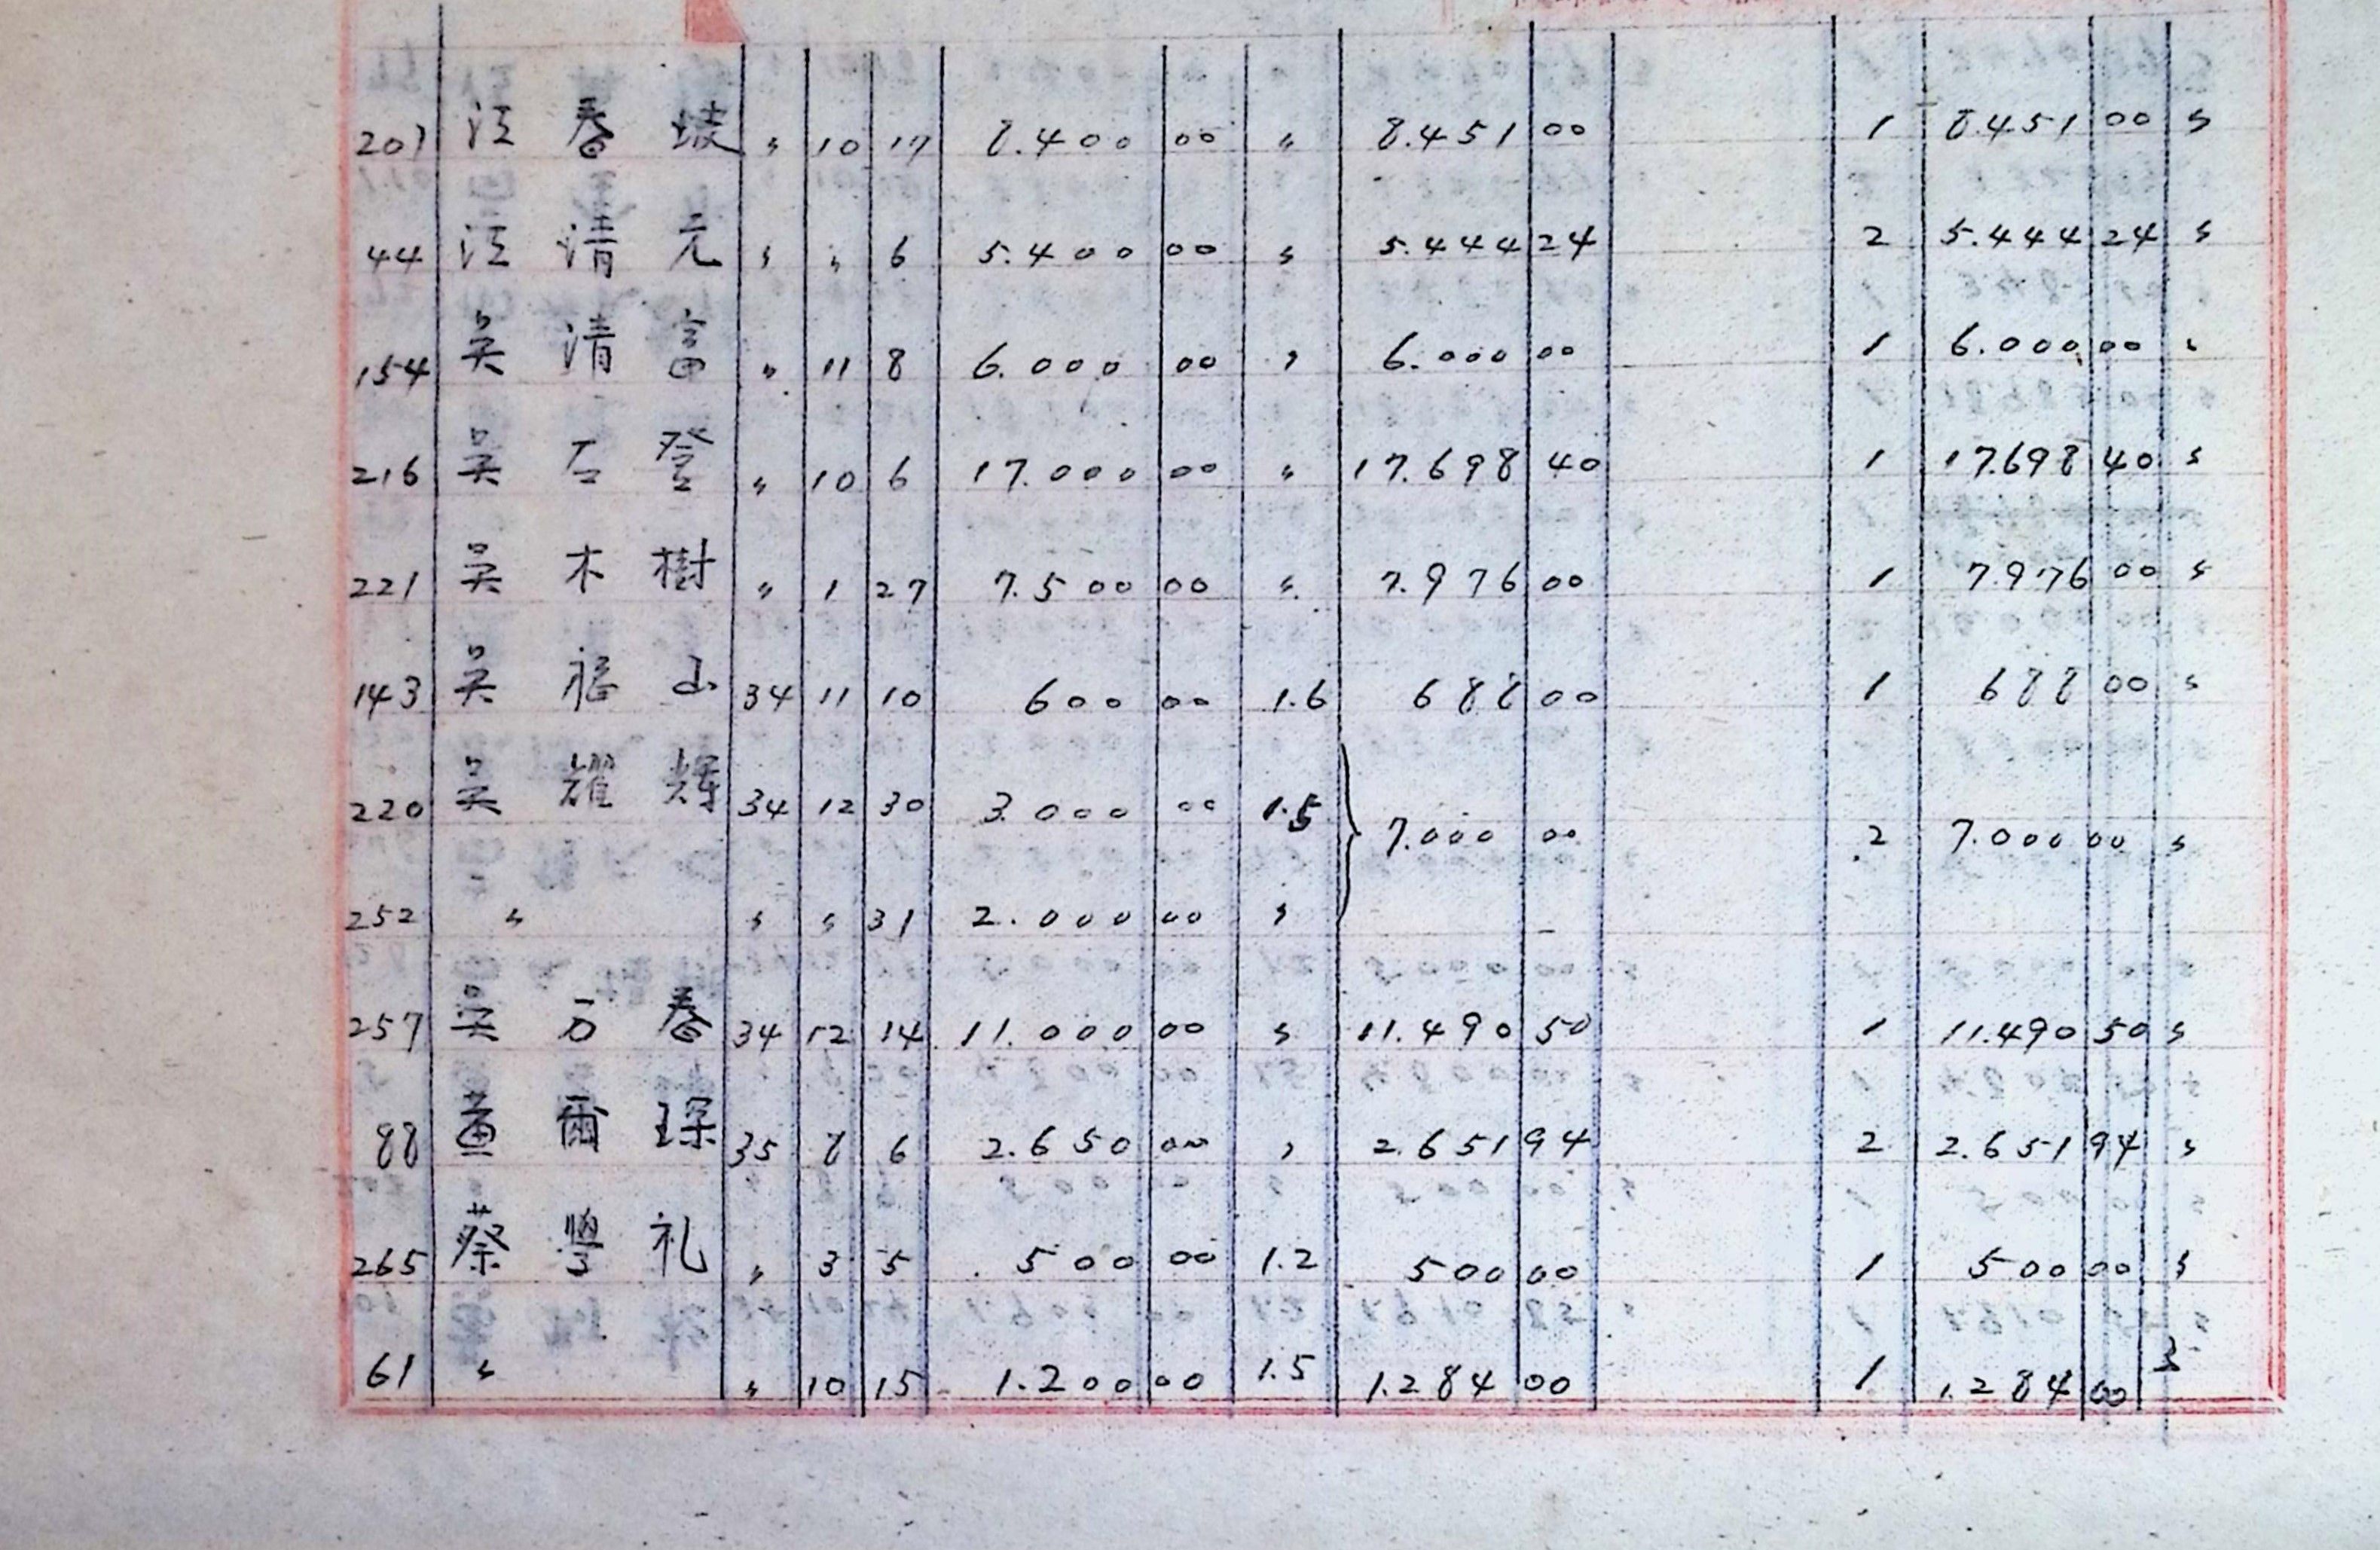 201 江 春 坡 〃 10 17 8.400 00 〃 8.451 00 1 8.451 00 〃
44 江 清 元 〃 〃 6 5.400 00 〃 5.444 24 2 5.444 24 〃
154 吴 清 富 〃 11 8 6.000 00 〃 6.000 00 1 6.000 00 〃
216 吴 石 登 〃 10 6 17.000 00 〃 17.698 40 1 17.698 40 〃
221 吴 木 樹 〃 1 27 7.500 00 〃 7.976 00 1 7.976 00 〃
143 吴 福 山 34 11 10 600 00 1.6 688 00 1 688 00 〃
220 吴 耀 輝 34 12 30 3.000 00 1.5 7.000 00 2 7.000 00 〃
252 〃 〃 〃 31 2.000 00 〃
257 吴 万 春 34 12 14 11.000 00 〃 11.490 50 1 11.490 50 〃
88 黄 爾 琛 35 8 6 2.650 00 〃 2.651 94 2 2.651 94 〃
265 蔡 學 礼 〃 3 5 500 00 1.2 500 00 1 500 00 〃
61 〃 〃 10 15 1.200 00 1.5 1.284 00 1 1.284 00